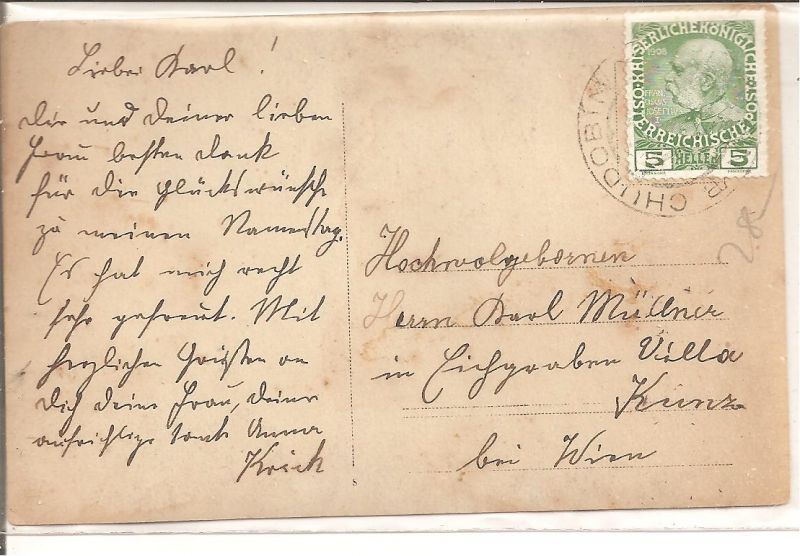 Lieber Karl!
Dir und deiner lieben
Frau besten dank
für die glückswünsche
zu meinen Namenstag.
Es hat mich recht
sehr gefreut. Mit
herzlichen Grüssen an
Dich deine Frau, deine
aufrichtige tante Anna
Krick
KAISERLICHE KÖNIGLICHE
ÖSTERREICHISCHE POST
1908
FRANCISCUS
JOSEPH
I
5 HELLER 5
CHUDOBIN
28
Hochwolgebornen
Herrn Karl Müllner
in Eichgraben Villa
Kunz
bei Wien